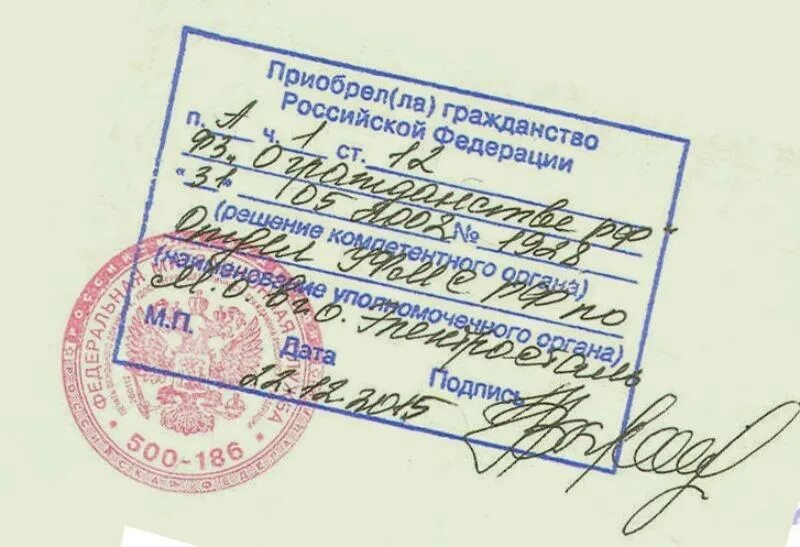 Приобрел(ла) гражданство
Российской Федерации
п. А ч. 1 ст. 12
ФЗ „О гражданстве РФ“
"31" 05 2002 № 1928
(решение компетентного органа)
Отдел УФМС РФ по
(наименование уполномоченного органа)
М.О. в г.о. Электросталь
М.П. Дата Подпись
22.12.2015
ФЕДЕРАЛЬНАЯ МИГРАЦИОННАЯ СЛУЖБА
500-186